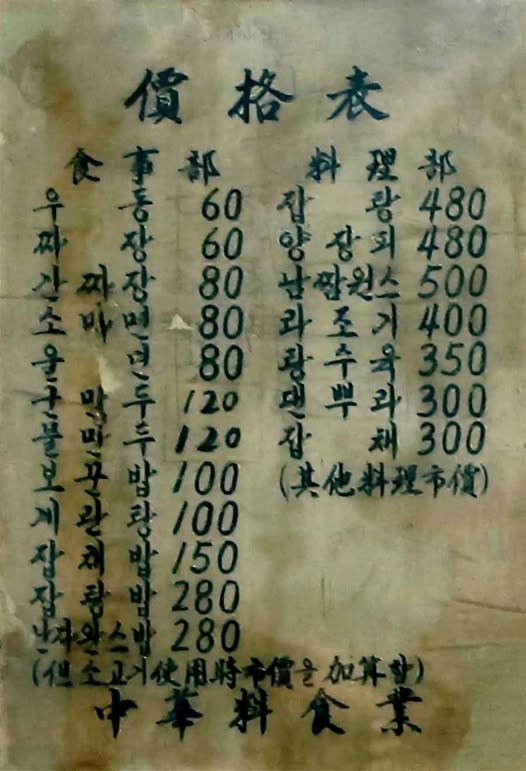 價格表
食事部
우동 60
짜장 60
간짜장 80
소마면 80
울면 80
군만두 120
물만두 120
보끈밥 100
계란탕 100
잡채밥 150
잡탕밥 280
난자완스밥 280
(但 소고기使用時市價을 加算함)
料理部
잡탕 480
양장피 480
500
라조기 400
탕수육 350
댄뿌라 300
잡채 300
(其他料理市價)
中華料食業